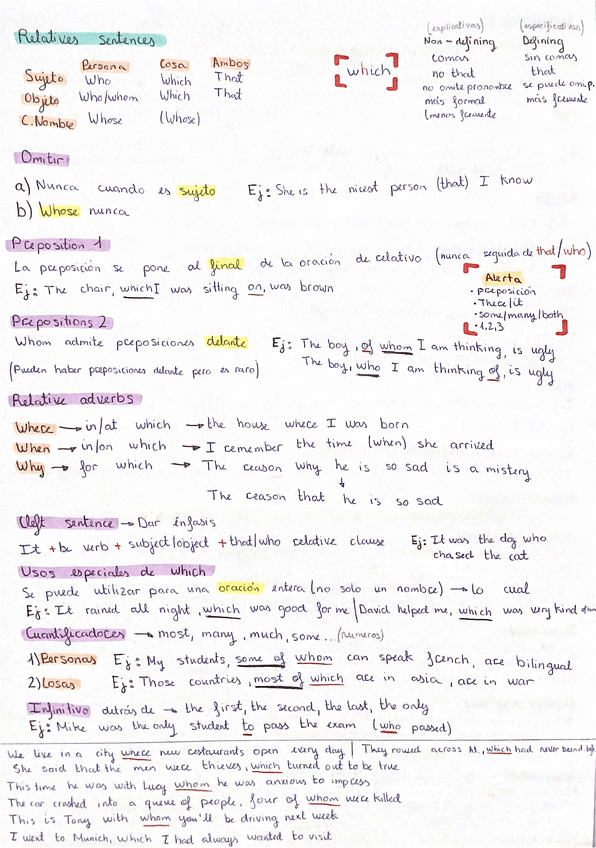 Relatives sentences
(explicativas) (especificativas)
Non-defining Defining
Persona Cosa Ambos
comas sin comas
Sujeto Who Which That
which
no that that
Objeto Who/whom Which That
no omite pronombre se puede omitir
C.Nombre Whose (Whose)
más formal más frecuente
(menos frecuente
Omitir
a) Nunca cuando es sujeto Ej: She is the nicest person (that) I know
b) Whose nunca
Preposition 1
La preposición se pone al final de la oración de relativo (nunca seguida de that/who)
Ej: The chair, which I was sitting on, was brown
Alerta
• preposición
• There/it
• some/many/both
• 1,2,3
Prepositions 2
Whom admite preposiciones delante Ej: The boy, of whom I am thinking, is ugly
(Pueden haber preposiciones delante pero es raro) The boy, who I am thinking of, is ugly
Relative adverbs
Where → in/at which → the house where I was born
When → in/on which → I remember the time (when) she arrived
Why → for which → The reason why he is so sad is a mistery
↓
The reason that he is so sad
Cleft sentence → Dar énfasis
It + be verb + subject/object + that/who relative clause Ej: It was the dog who
chased the cat
Usos especiales de which
Se puede utilizar para una oración entera (no solo un nombre) → lo cual
Ej: It rained all night, which was good for me / David helped me, which was very kind
Cuantificadores → most, many, much, some... (numeros)
1) Personas Ej: My students, some of whom can speak french, are bilingual
2) Cosas Ej: Those countries, most of which are in asia, are in war
Infinitivo detrás de → the first, the second, the last, the only
Ej: Mike was the only student to pass the exam (who passed)
We live in a city where new restaurants open every day | They rowed across A., which had never been
She said that the men were thieves, which turned out to be true
This time he was with Lucy whom he was anxious to impress
The car crashed into a queue of people, four of whom were killed
This is Tony with whom you'll be driving next week
I went to Munich, which I had always wanted to visit